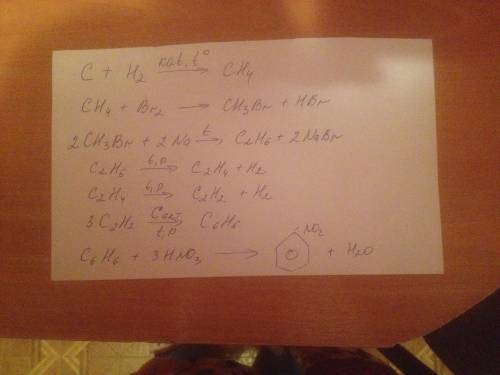 C + H2 кат, t° → CH4
CH4 + Br2 → CH3Br + HBr
2CH3Br + 2Na t → C2H6 + 2NaBr
C2H6 t, p → C2H4 + H2
C2H4 t, p → C2H2 + H2
3C2H2 Cакт t, p → C6H6
C6H6 + 3HNO3 → NO2 + H2O